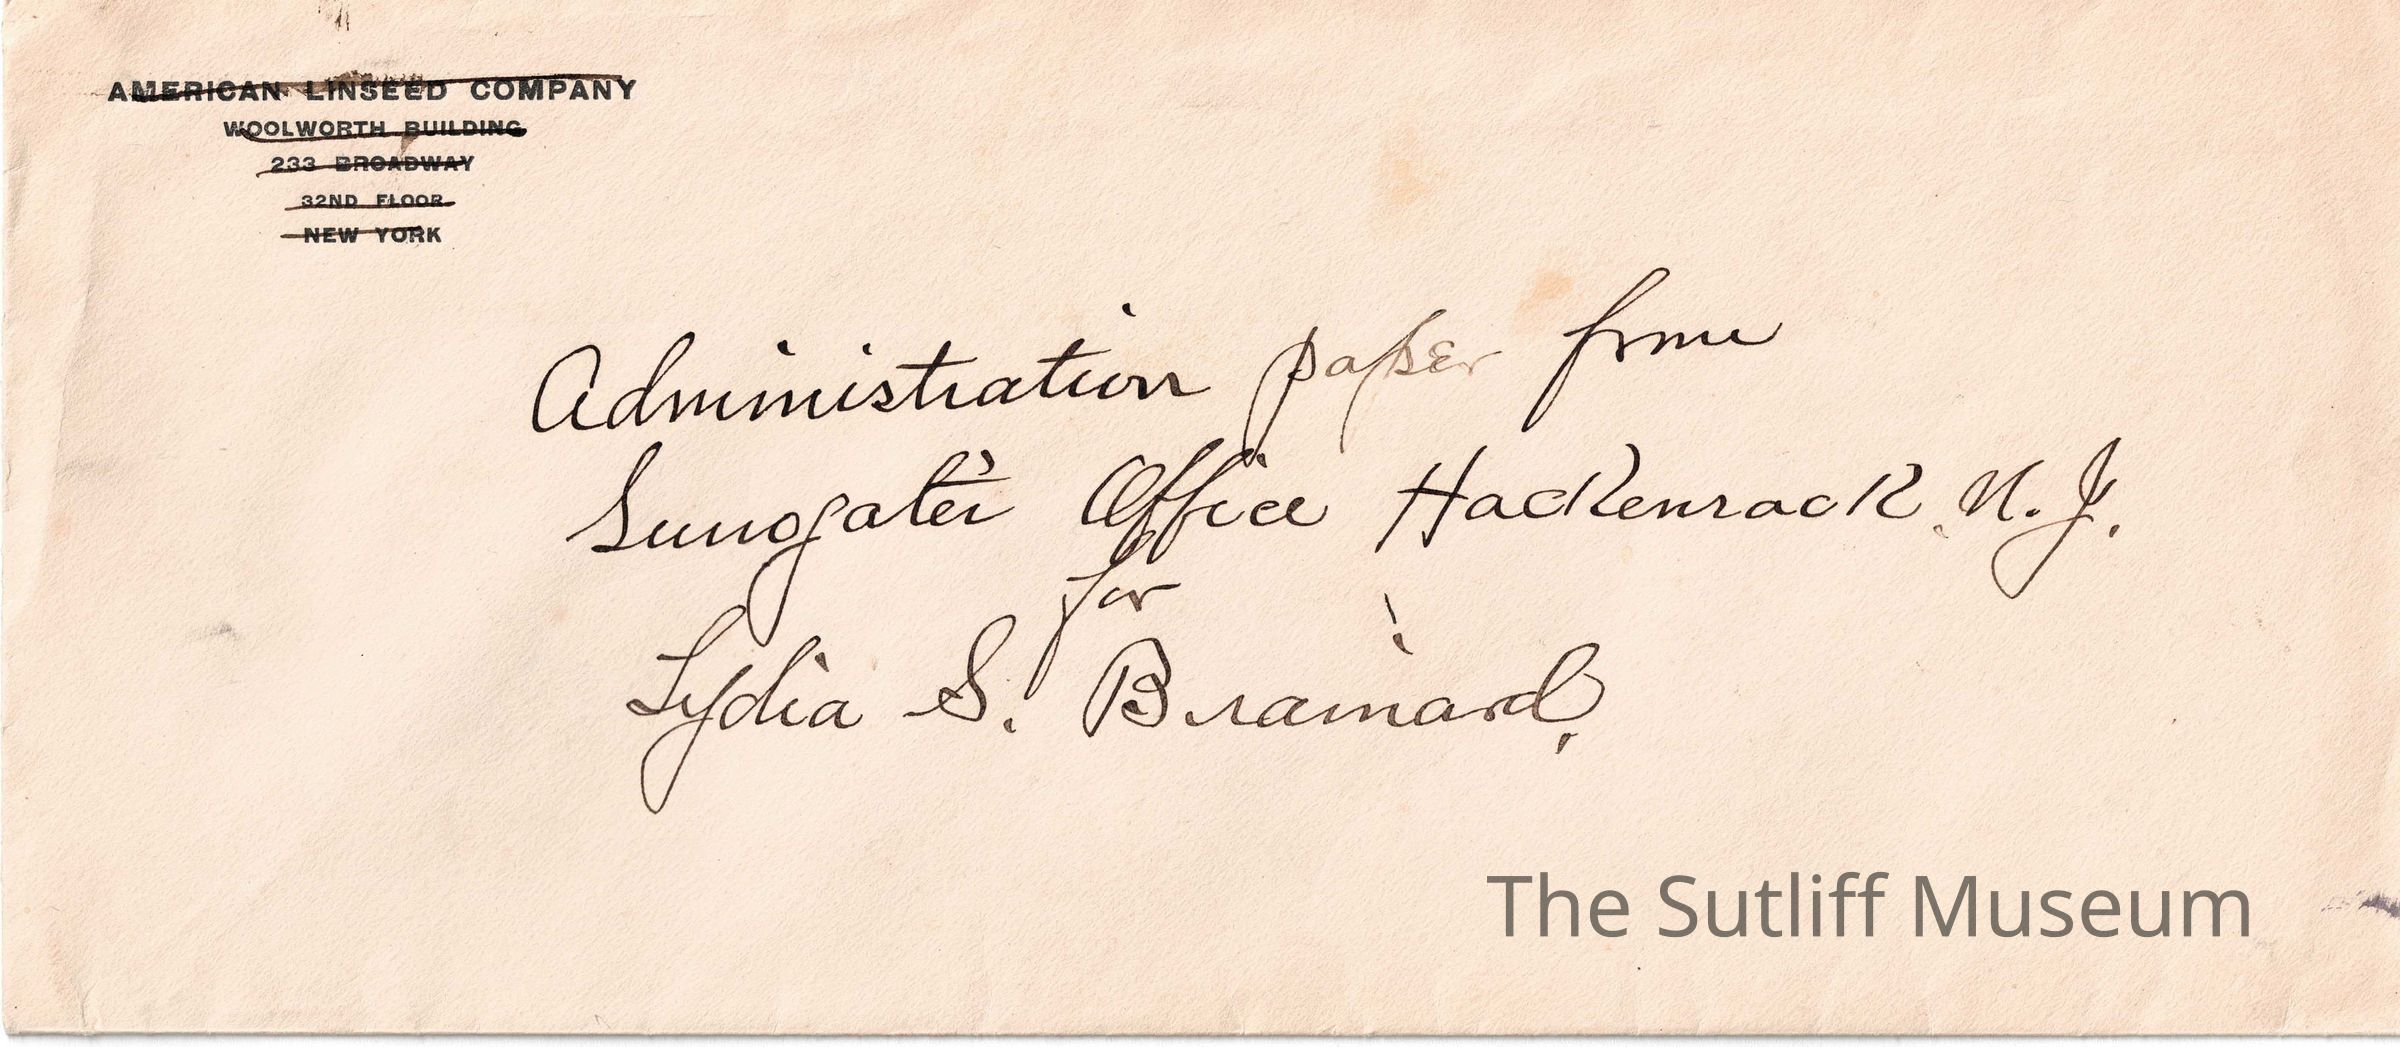 AMERICAN LINSEED COMPANY
WOOLWORTH BUILDING
233 BROADWAY
32ND FLOOR
NEW YORK
Administration paper from
Surrogate's Office Hackensack N.J.
for
Lydia S. Brainard.
The Sutliff Museum